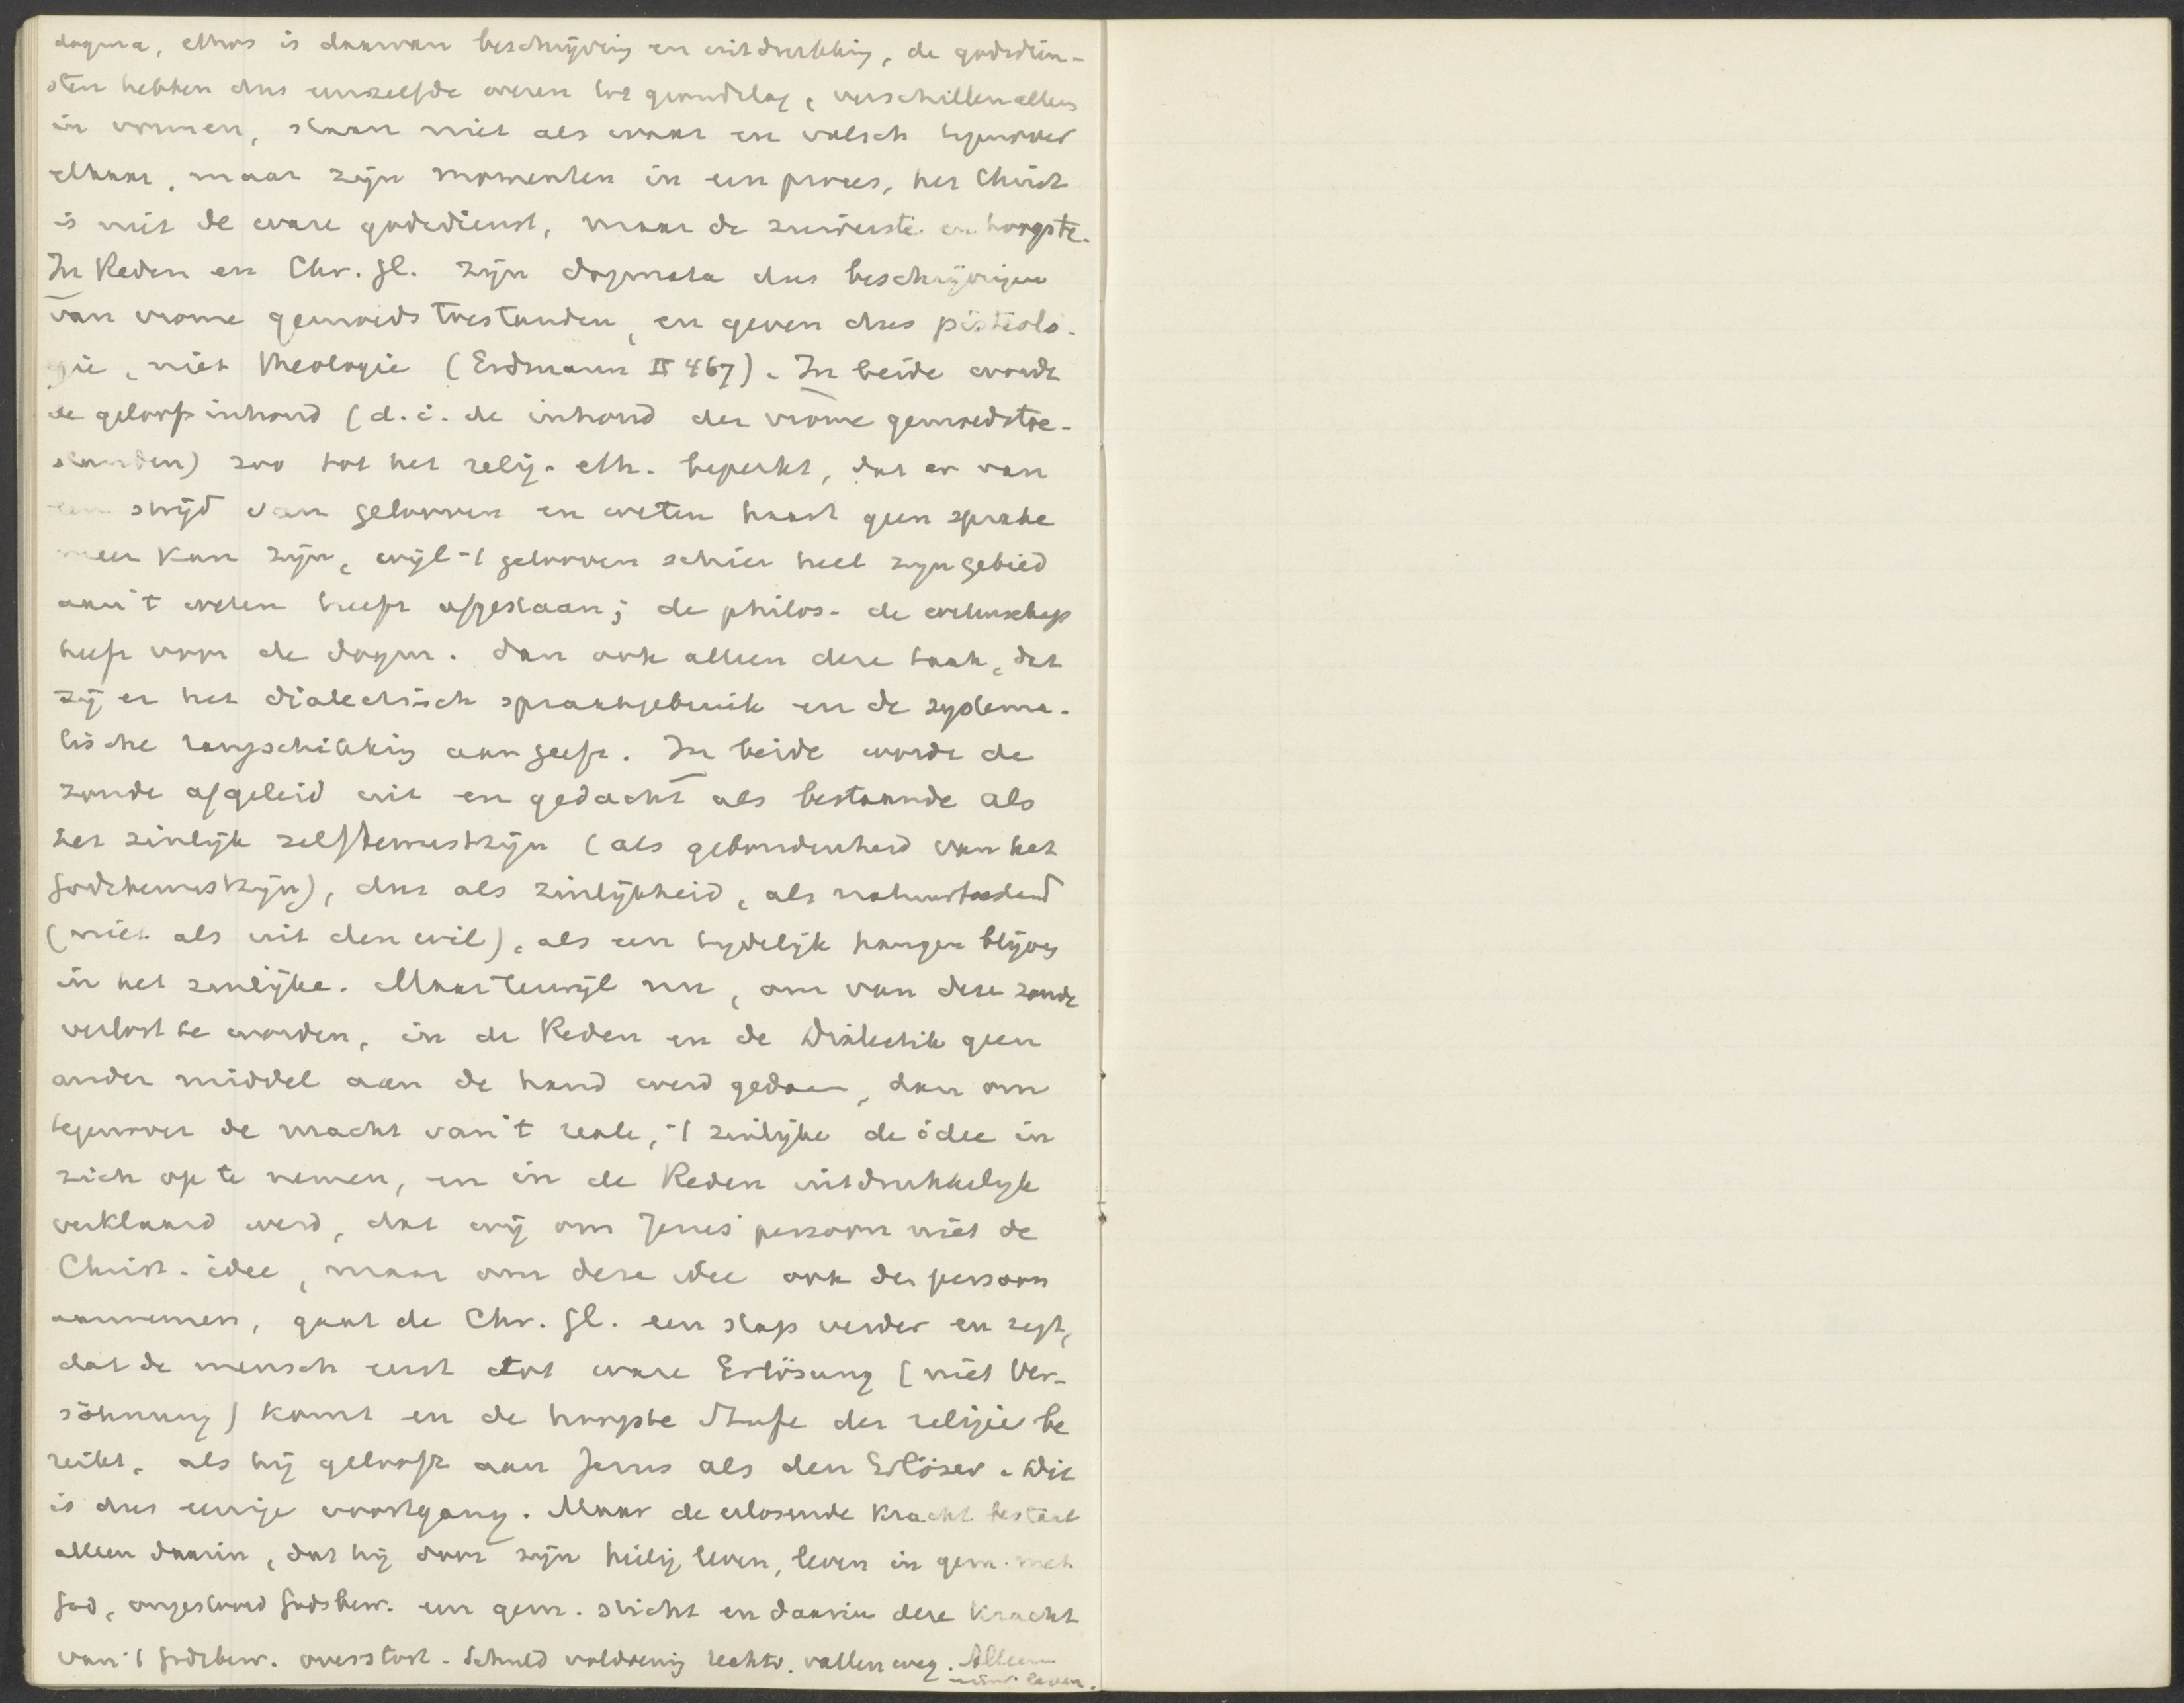 dogma, ethos is daarvan beschrijving en uitdrukking, de godsdien-
sten hebben dus eenzelfde wezen tot grondslag, verschillen alleen
in vormen, staan niet als waar en valsch tegenover
elkaar, maar zijn momenten in een proces, het Christ
is niet de ware godsdienst, maar de zuiverste en hoogste.
In Reden en Chr. Gl. zijn dogmata dus beschrijvingen
van vrome gemoedstoestanden, en geven dus pisteolo-
gie, niet theologie (Erdmann II 467). In beide wordt
de geloofsinhoud (d.i. de inhoud der vrome gemoedstoe-
standen) zoo tot het relig. eth. beperkt, dat er van
een strijd van gelooven en weten haast geen sprake
meer kan zijn, wijl 't gelooven schier heel zijn gebied
aan 't weten heeft afgestaan; de philos. de wetenschap
heeft voor de dogm. dan ook alleen deze taak, dat
zij er het dialectisch spraakgebruik en de systema-
tische rangschikking aan geeft. In beide wordt de
zonde afgeleid uit en gedacht als bestaande als
het zinlijk zelfbewustzijn (als gebondenheid van het
Godsbewustzijn), dus als zinlijkheid, als natuurtoestand
(niet als uit den wil), als een tijdelijk hangen blijven
in het zinlijke. Maar terwijl nu, om van deze zonde
verlost te worden, in de Reden en de Dialektik geen
ander middel aan de hand werd gedaan, dan om
tegenover de macht van 't reale, 't zinlijke de idee in
zich op te nemen, en in de Reden uitdrukkelijk
verklaard werd, dat wij om Jezus' persoon niet de
Christ. idee, maar om deze idee ook den persoon
aannemen, gaat de Chr. Gl. een stap verder en zegt,
dat de mensch eerst tot ware Erlösung (niet Ver-
söhnung) komt en de hoogste Stufe der religie be
reikt, als hij gelooft aan Jezus als den Erlöser. Dit
is dus eenige voortgang. Maar de verlosende kracht bestaat
alleen daarin, dat hij door zijn heilig leven, leven in gem. met
God, ongestoord Godsbew. een gem. sticht en daarin deze kracht
van 't Godsbew. overstort. Schuld voldoening rechtv. vallen weg. Alleen
nieuw leven.